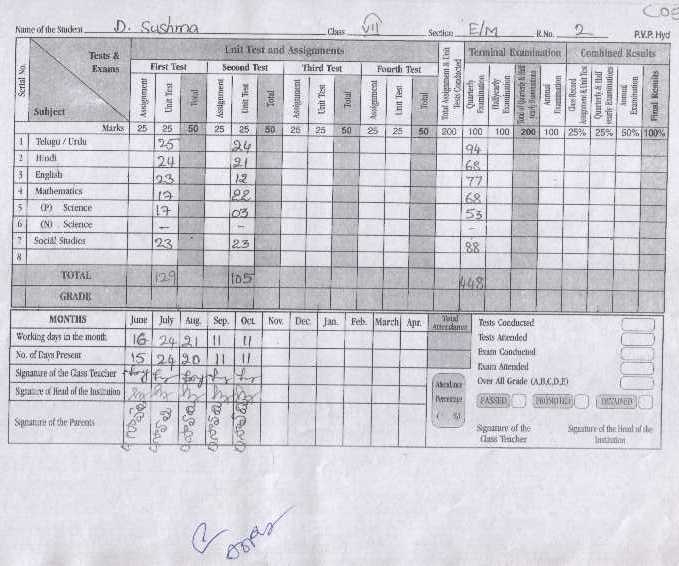 Cog
Name of the Student D. Sushma Class VII Section E/M R.No. 2 P.V.P. Hyd
Serial No. Tests & Exams Subject Unit Test and Assignments Terminal Examination Combined Results
First Test Second Test Third Test Fourth Test
Assignment Unit Test Total Assignment Unit Test Total Assignment Unit Test Total Assignment Unit Test Total Total Assignment & Unit Tests Conducted Quarterly Examination Halfyearly Examination Total of Quarterly & Half yearly Examinations Annual Examination Class Record Assignment & Unit Test Quarterly & Half yearly Examinations Annual Examination Final Results
Marks 25 25 50 25 25 50 25 25 50 25 25 50 200 100 100 200 100 25% 25% 50% 100%
1 Telugu / Urdu 25 24 94
2 Hindi 24 21 68
3 English 23 12 77
4 Mathematics 17 22 68
5 (P) Science 17 03 53
6 (N) Science - - -
7 Social Studies 23 23 88
8
TOTAL 129 105 448
GRADE
MONTHS June July Aug. Sep. Oct. Nov. Dec. Jan. Feb. March Apr. Total Attendance
Working days in the month 16 24 21 11 11
No. of Days Present 15 24 20 11 11
Signature of the Class Teacher
Signature of Head of the Institution
Signature of the Parents
Attendance Percentage ( %)
Tests Conducted
Tests Attended
Exam Conducted
Exam Attended
Over All Grade (A,B,C,D,E)
PASSED PROMOTED DETAINED
Signature of the Class Teacher
Signature of the Head of the Institution